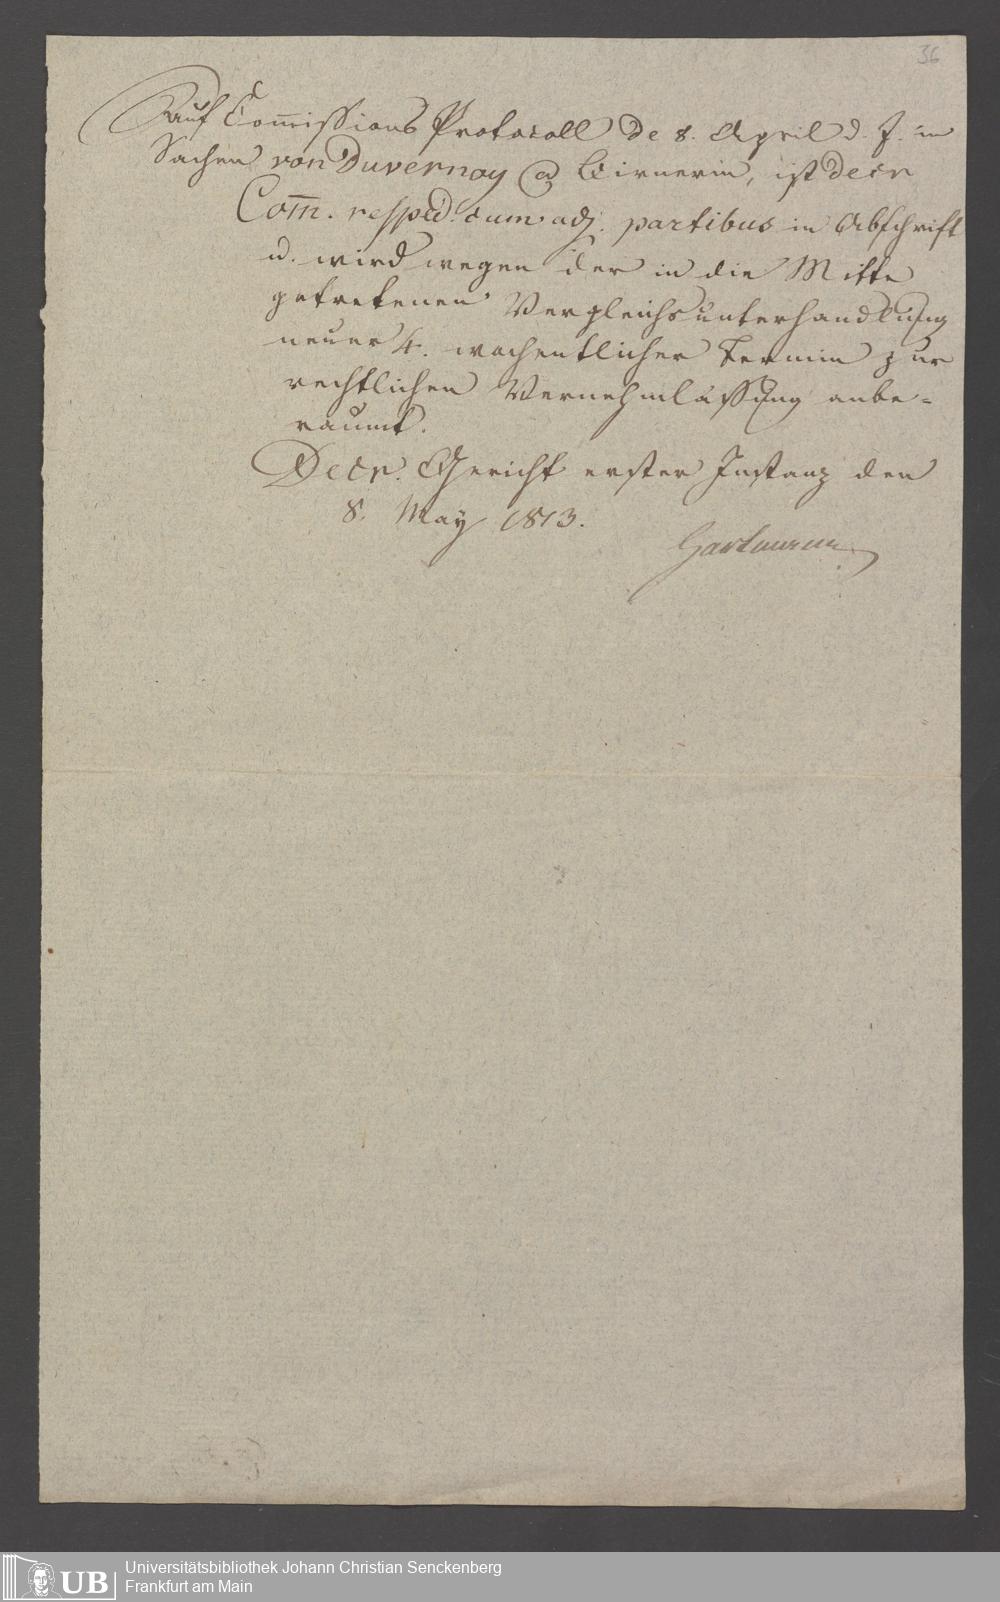 36
Auf Com̄issions Protocoll de 8. April d. J. in
Sachen von Duvernay Ca Birnerin, ist Decr
Com̄. resp. cum adj. partibus in Abschrift
u. wird wegen der in die Mitte
getretenen Vergleichsunterhandlung
neuer 4. wochentlicher Termin zur
rechtlichen Vernehmlassung anbe-
raumt.
Decr. Gericht erster Instanz den
8. May 1813.
Hartmann
UB
Universitätsbibliothek Johann Christian Senckenberg
Frankfurt am Main